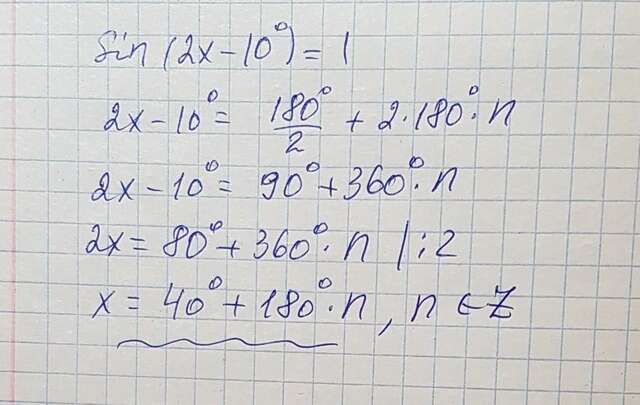 Sin (2x – 10°) = 1
2x – 10° = 180°/2 + 2·180°·n
2x – 10° = 90° + 360°·n
2x = 80° + 360°·n | :2
x = 40° + 180°·n, n ∈ Z